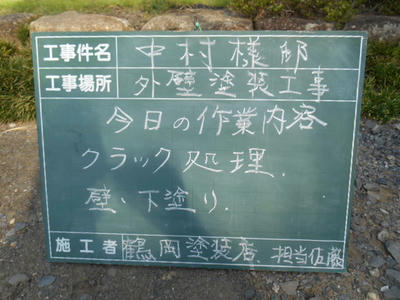 工事件名 中村様邸
工事場所 外壁塗装工事
今日の作業内容
クラック処理.
壁、下塗り.
施工者 鶴岡塗装店. 担当佐藤